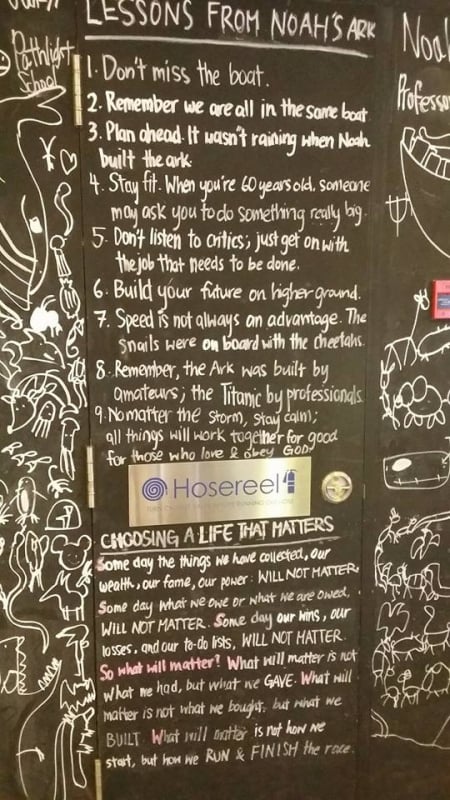 LESSONS FROM NOAH'S ARK
Pathlight
School
Noah
Professor
1. Don't miss the boat.
2. Remember we are all in the same boat
3. Plan ahead. It wasn't raining when Noah
built the ark
4. Stay fit. When you're 60 years old, someone
may ask you to do something really big.
5. Don't listen to critics; just get on with
the job that needs to be done.
6. Build your future on higher ground.
7. Speed is not always an advantage. The
snails were on board with the cheetahs.
8. Remember, the Ark was built by
amateurs; the Titanic by professionals.
9. No matter the storm, stay calm;
all things will work together for good
for those who love & obey GOD.
Hosereel
CHOOSING A LIFE THAT MATTERS
Some day the things we have collected, our
wealth, our fame, our power: WILL NOT MATTER.
Some day what we owe or what we are owed,
WILL NOT MATTER. Some day our wins, our
losses, and our to-do lists, WILL NOT MATTER.
So what will matter? What will matter is not
what we had, but what we GAVE. What will
matter is not what we bought, but what we
BUILT. What will matter is not how we
start, but how we RUN & FINISH the race.